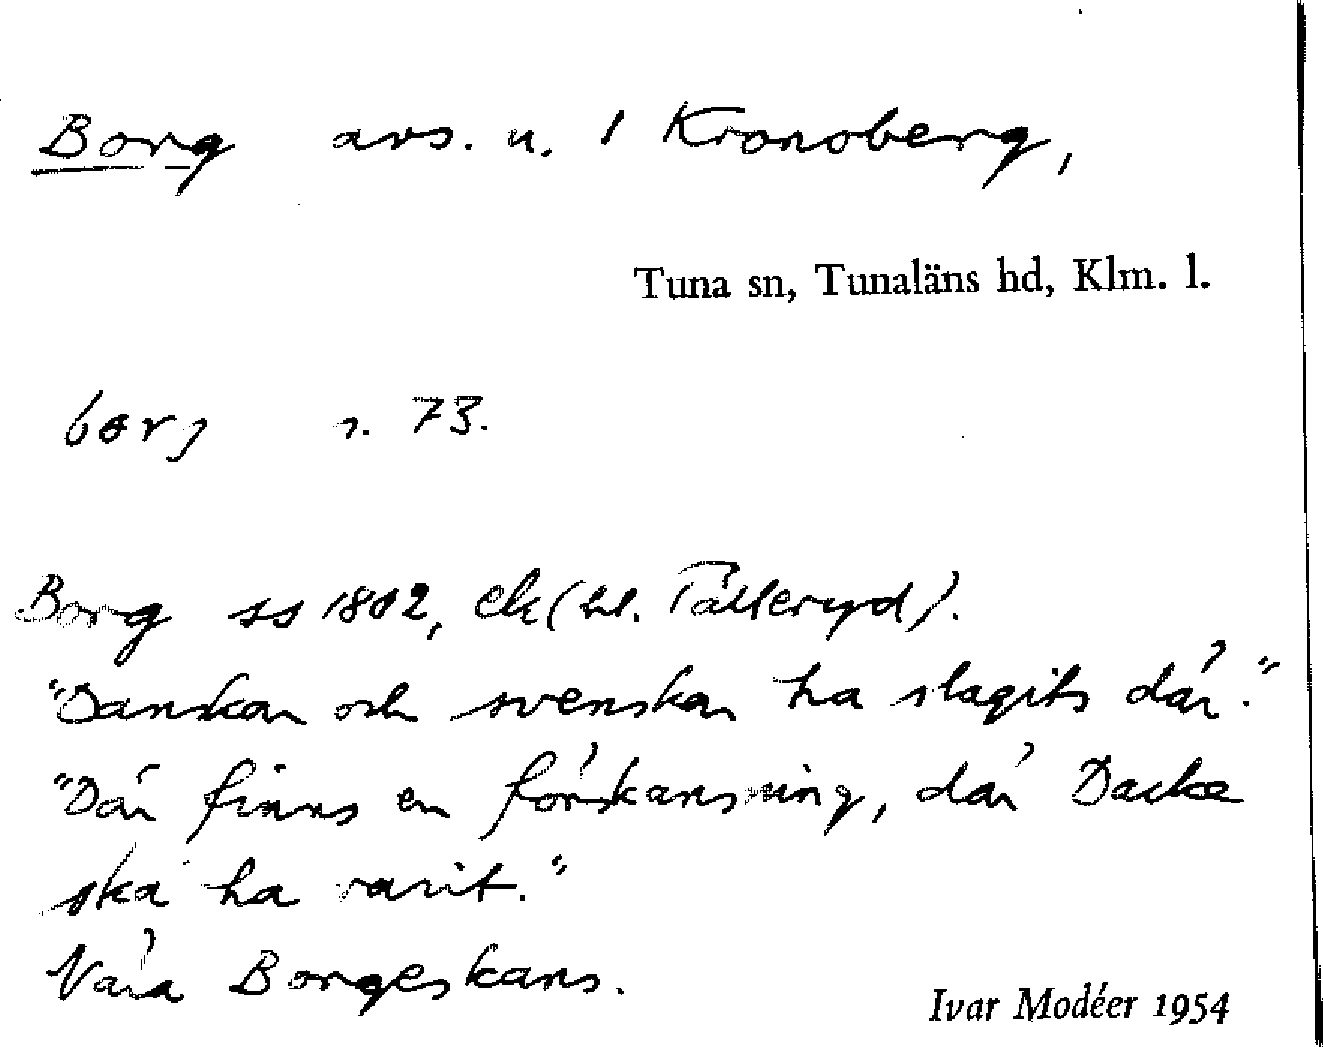 Borg avs. u. 1 Kronoberg,
Tuna sn, Tunaläns hd, Klm. l.
borj s. 73.
Borg ss 1802, ek (bl. Tålleryd).
"Danskar och svenskar ha slagits där."
"Där finns en förskansning, där Dacke
ska ha varit."
Vára Borgeskans.
Ivar Modéer 1954